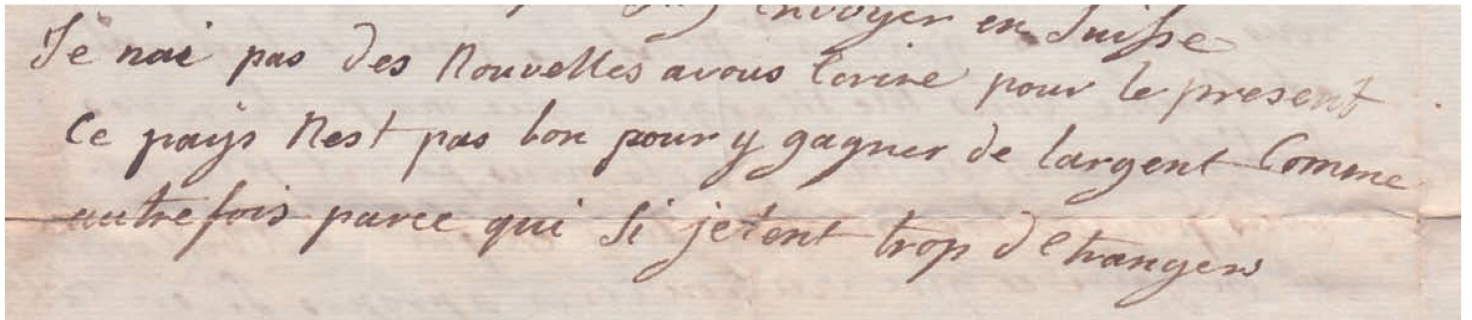 envoyer en Suisse
Je nai pas des Nouvelles avous Ecrire pour le present
Ce pays Nest pas bon pour y gagner de largent Comme
autrefois parce qui Si jetent trop detrangers